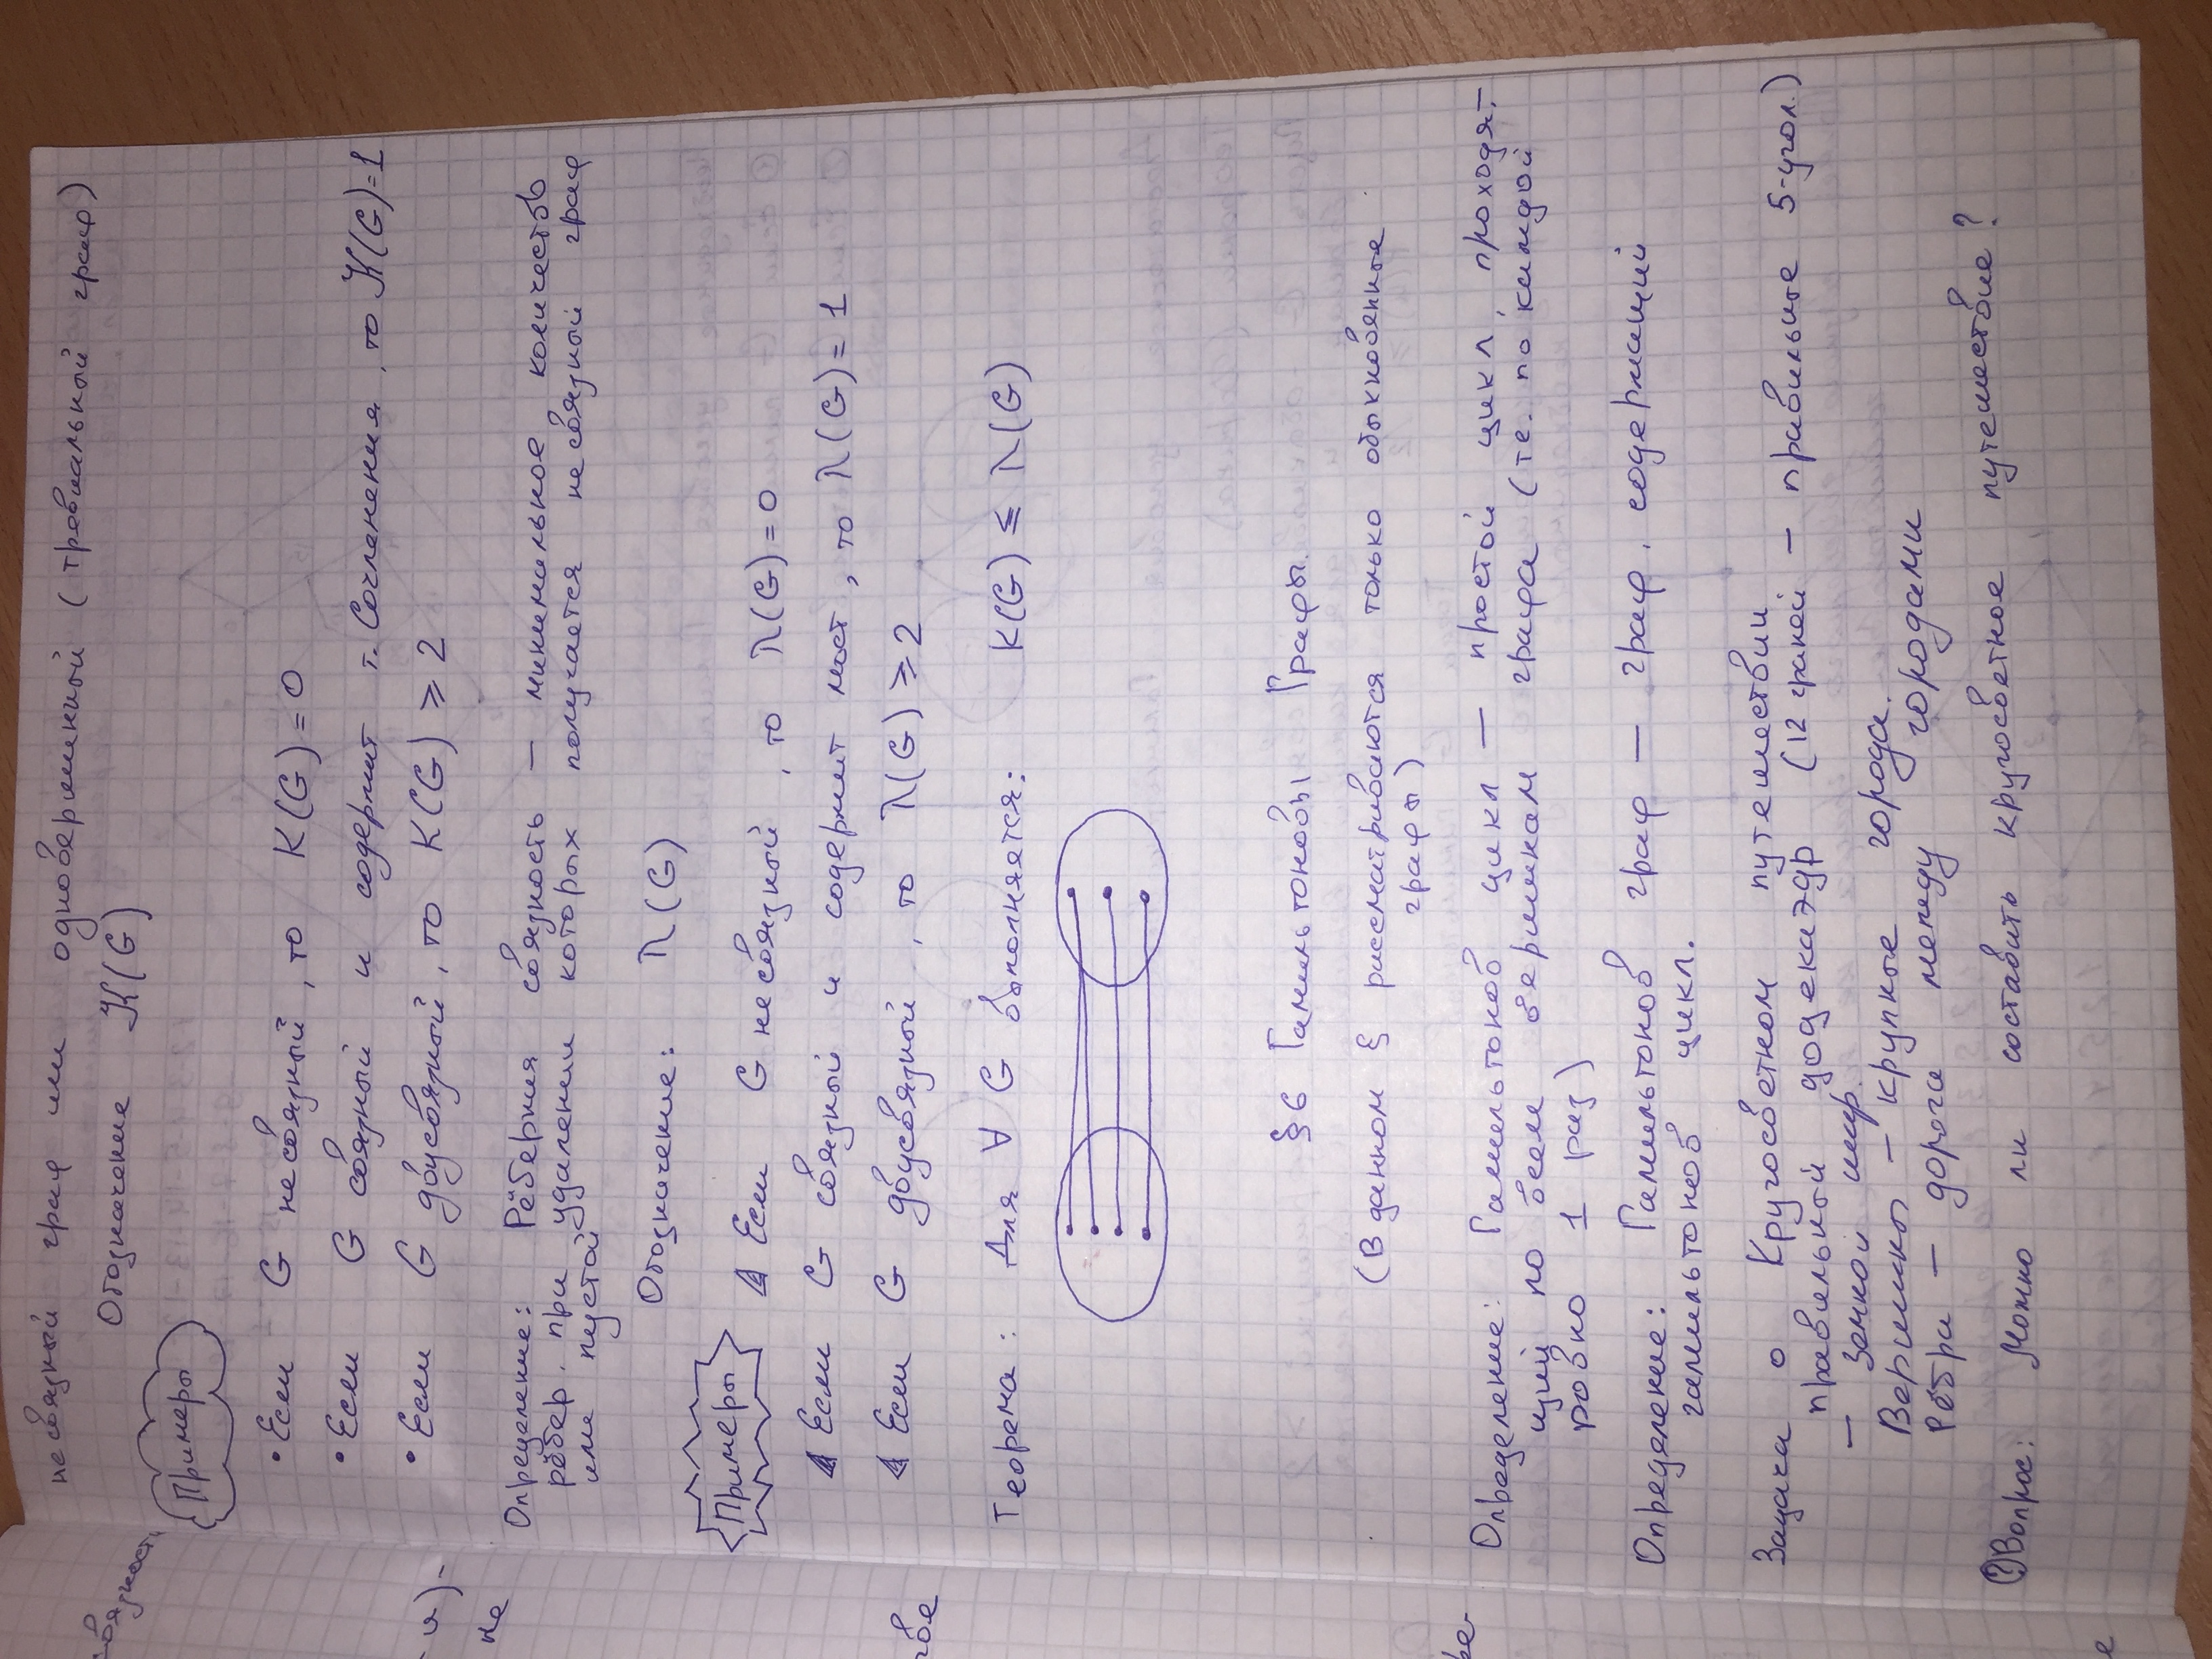 несвязный граф или одновершинный (тревиальный граф)
Обозначение K(G)
Примеры
• Если G несвязный, то K(G) = 0
• Если G связный и содержит т. Сочленения, то K(G)=1
• Если G двусвязный, то K(G) ⩾ 2
Определение: Рёберная связность — минимальное количество
рёбер, при удалении которых получается несвязный граф
или пустой
Обозначение: λ(G)
Примеры
Если G несвязный, то λ(G) = 0
Если G связный и содержит мост, то λ(G) = 1
Если G двусвязный, то λ(G) ⩾ 2
Теорема: Для ∀ G выполняется: K(G) ⩽ λ(G)
§6 Гамильтоновы Графы.
(В данном § рассматриваются только обыкновенные
графы)
Определение: Гамильтонов цикл — простой цикл, проходя-
щий по всем вершинам графа (те. по каждой
ровно 1 раз)
Определение: Гамильтонов граф — граф, содержащий
гамильтонов цикл.
Задача о Кругосветном путешествии
правильный додекаэдр (12 граней — правильные 5-угол.)
— Земной шар.
Вершины — крупные города.
Рёбра — дороги между городами
? Вопрос: Можно ли составить кругосветное путешествие?
связности
не